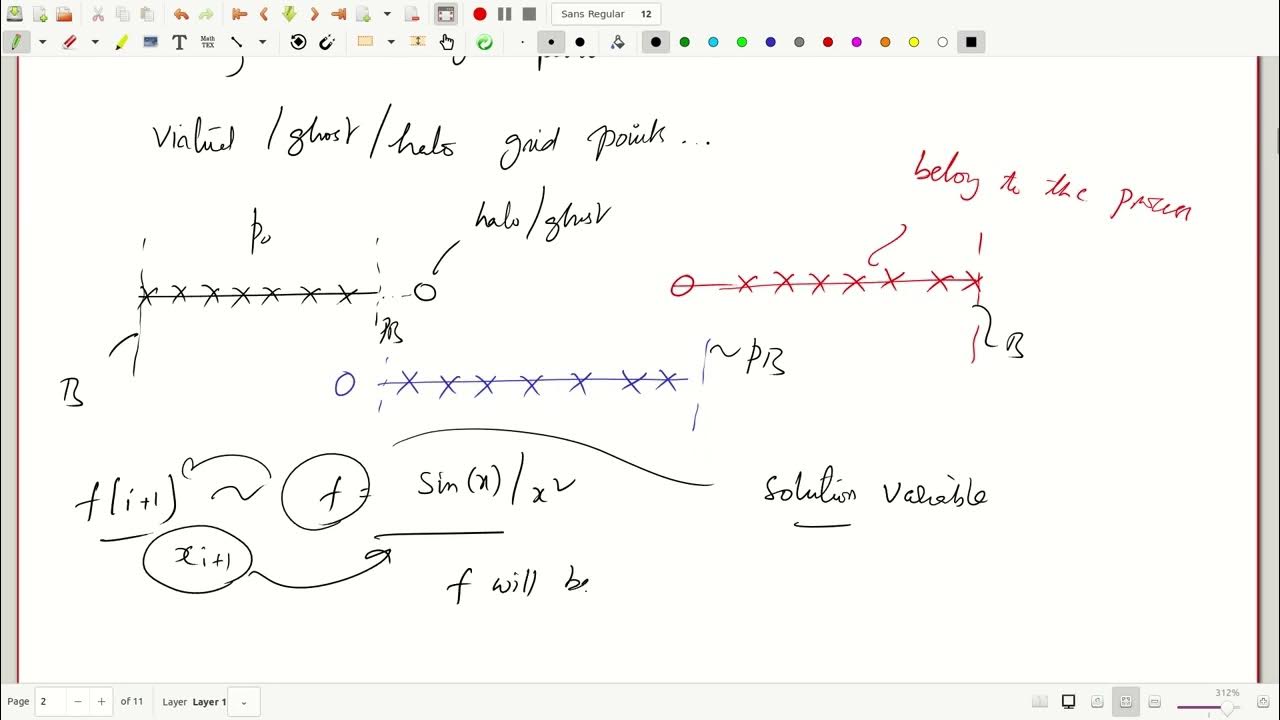 Sans Regular 12
T Math TEX
virtual / ghost / halo grid points ...
belong to the process
halo/ghost
P0
PB
B
B
~ PB
f(i+1) ~ f = sin(x) / x2
solution variable
xi+1
f will be
Page 2 of 11 Layer Layer 1
312%